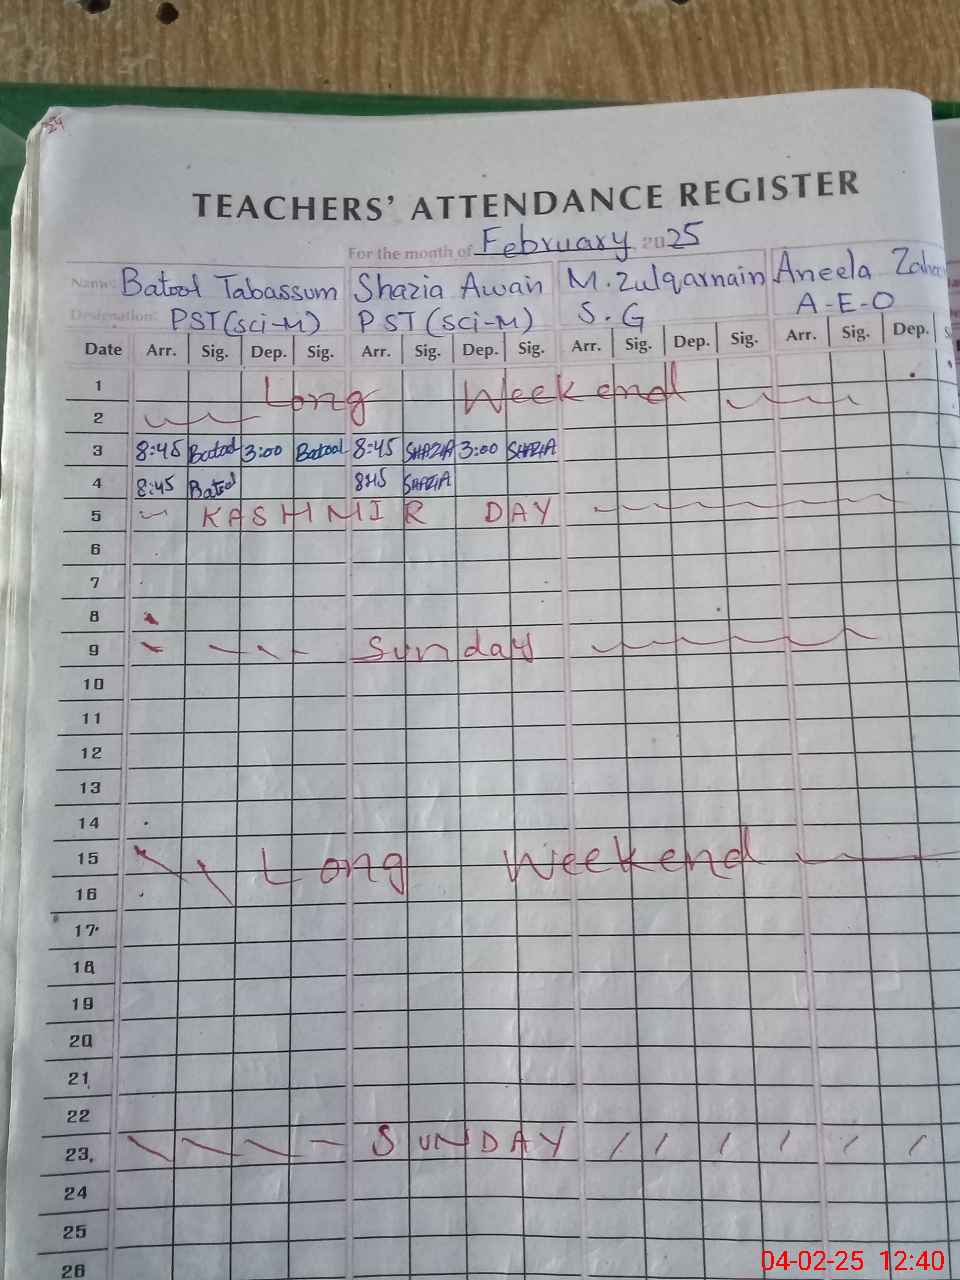 TEACHERS' ATTENDANCE REGISTER
For the month of February 2025
Name: Batool Tabassum Shazia Awan M. Zulqarnain Aneela
Designation: PST (Sci-M) PST (Sci-M) S.G A-E-O
Date Arr. Sig. Dep. Sig. Arr. Sig. Dep. Sig. Arr. Sig. Dep. Sig. Arr. Sig. Dep.
1 Long Weekend
2
3 8:45 Batool 3:00 Batool 8:45 SHAZIA 3:00 SHAZIA
4 8:45 Batool 8:45 SHAZIA
5 KASHMIR DAY
6
7
8
9 Sunday
10
11
12
13
14
15 Long Weekend
16
17
18
19
20
21
22
23 SUNDAY
24
25
26
04-02-25 12:40